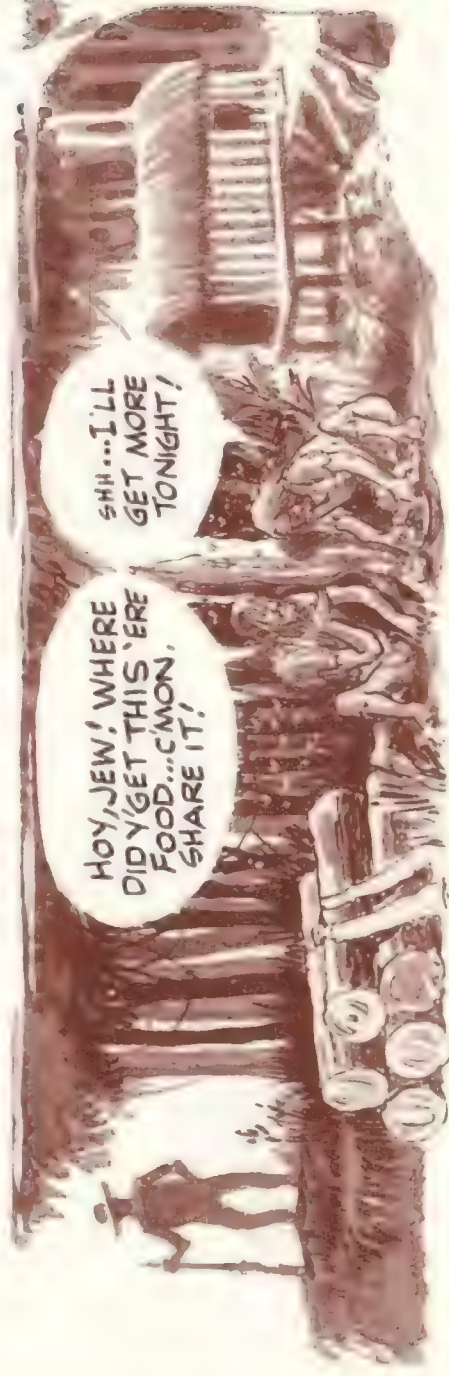 HOY, JEW! WHERE
DID Y'GET THIS 'ERE
FOOD...C'MON,
SHARE IT!
SHH...I'LL
GET MORE
TONIGHT!